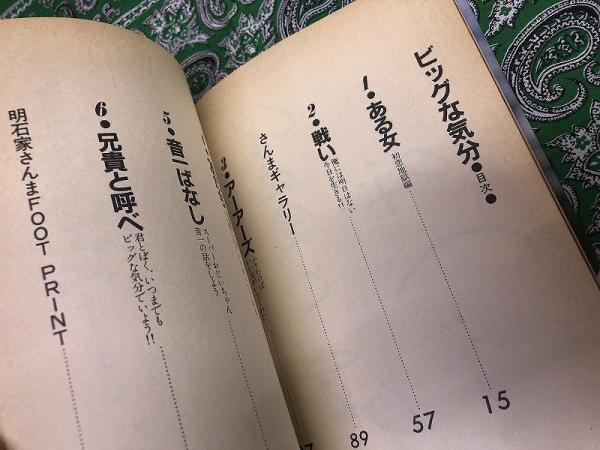 ビッグな気分●目次●
1●ある女
初恋地獄編
15
2●戦い
俺には明日はない
今日を生きる!!
57
さんまギャラリー
89
3●アーアーズ
5●音一ばなし
スーパーおじいちゃん
音一の話をしよう
6●兄貴と呼べ
君とぼく、いつまでも
ビッグな気分でいよう!!
明石家さんまFOOT PRINT